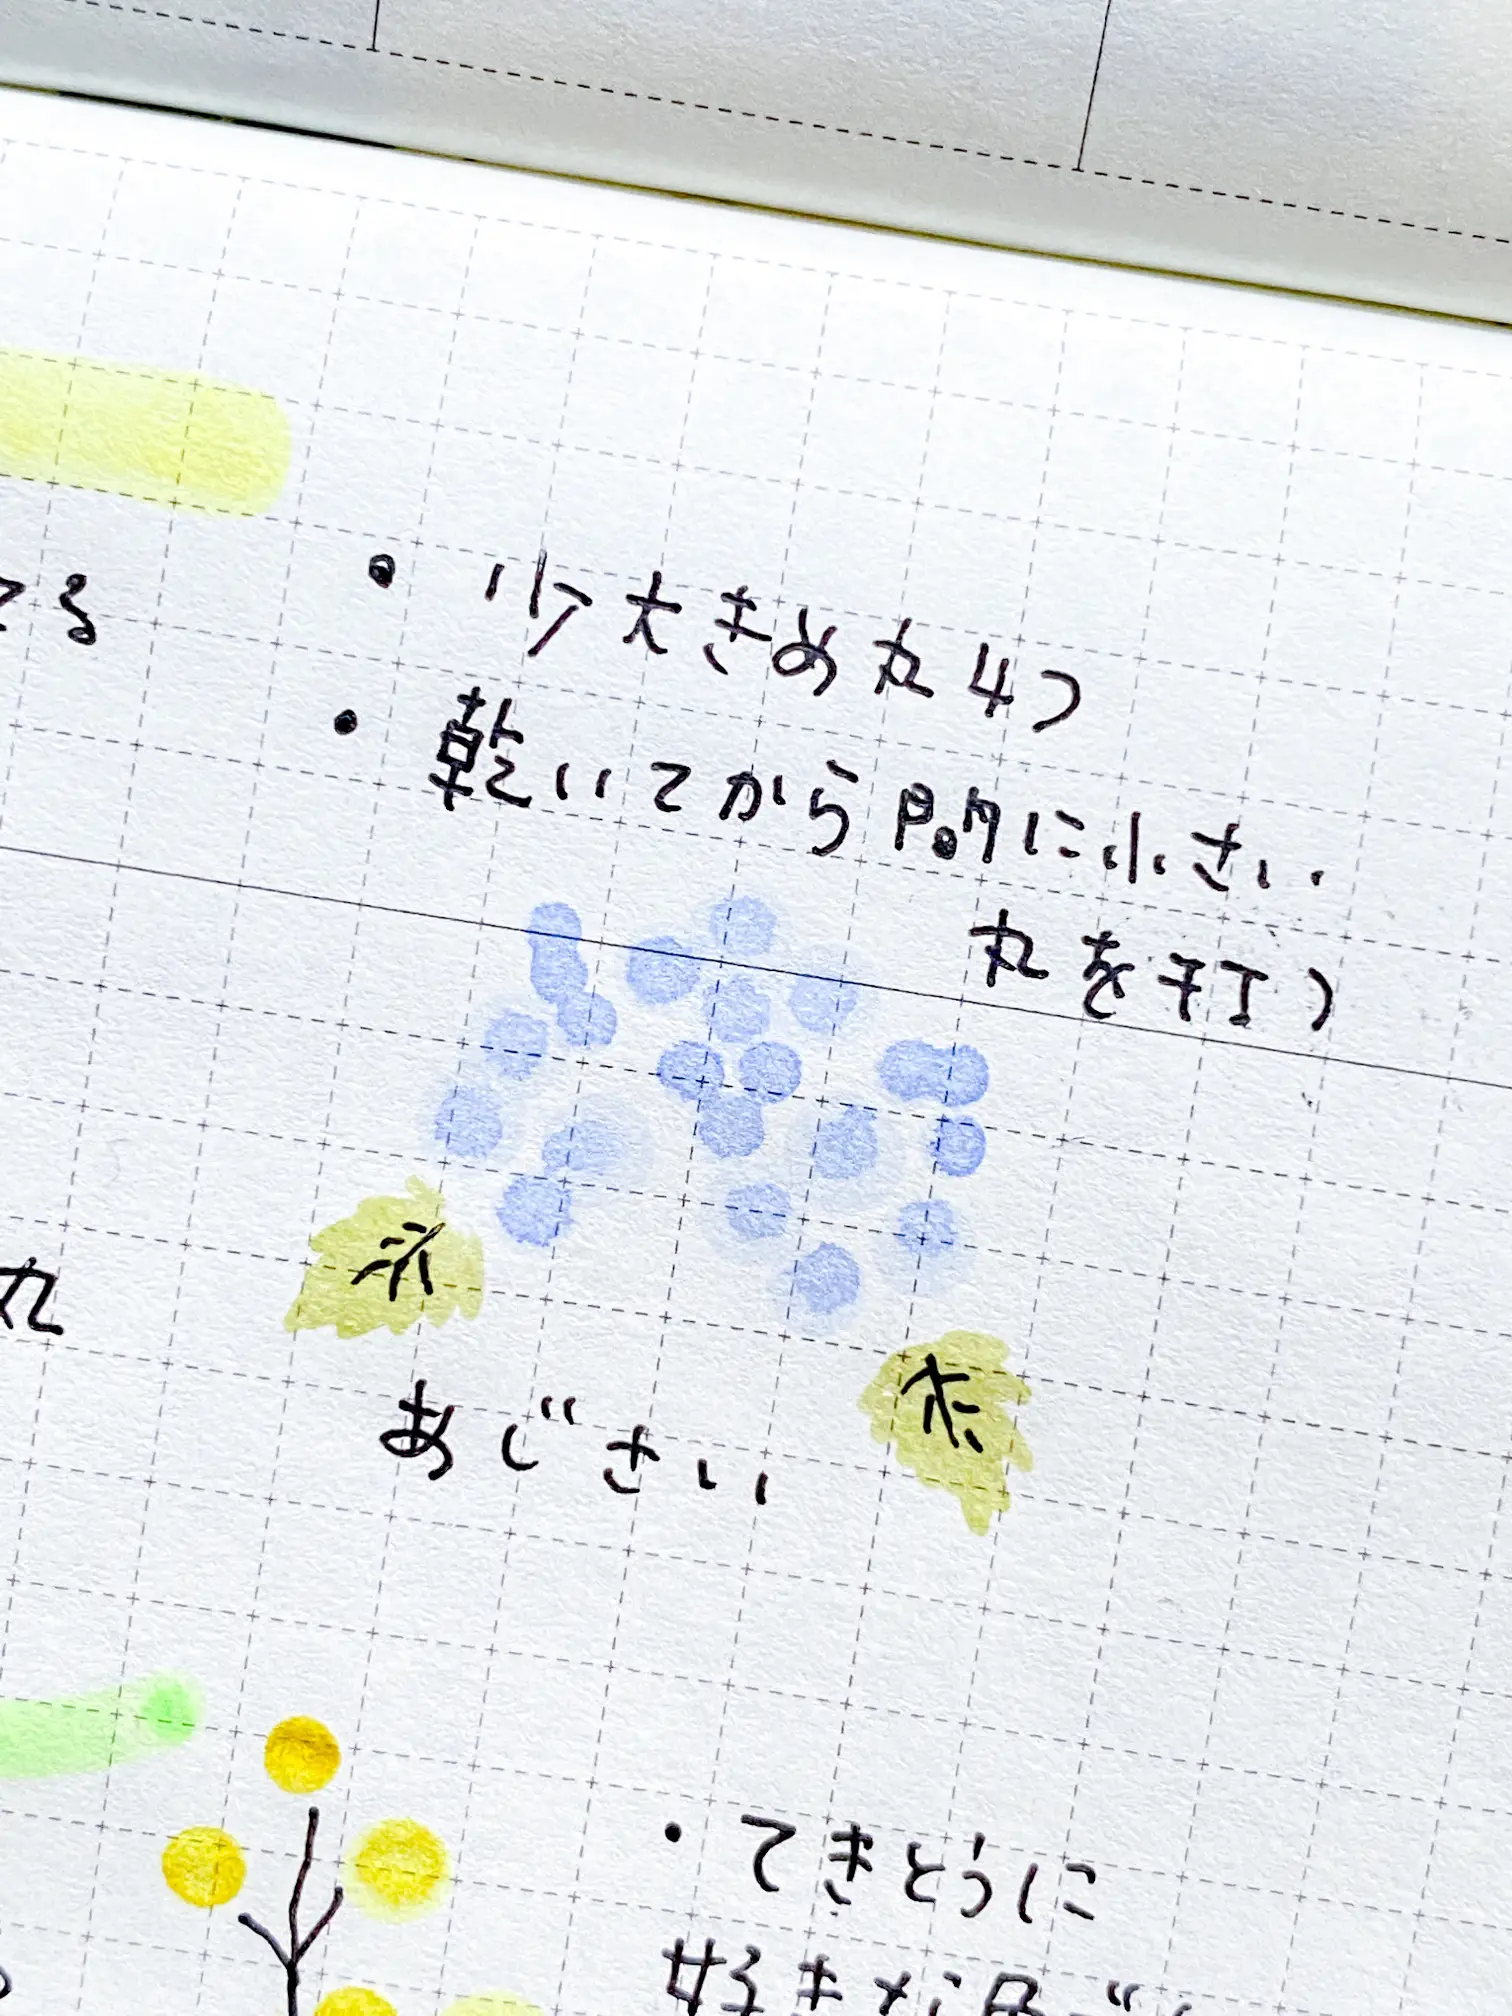 てる
・少大きめ丸4つ
・乾いてから間に小さい
丸を打つ
丸
あじさい
・てきとうに
好きな色で